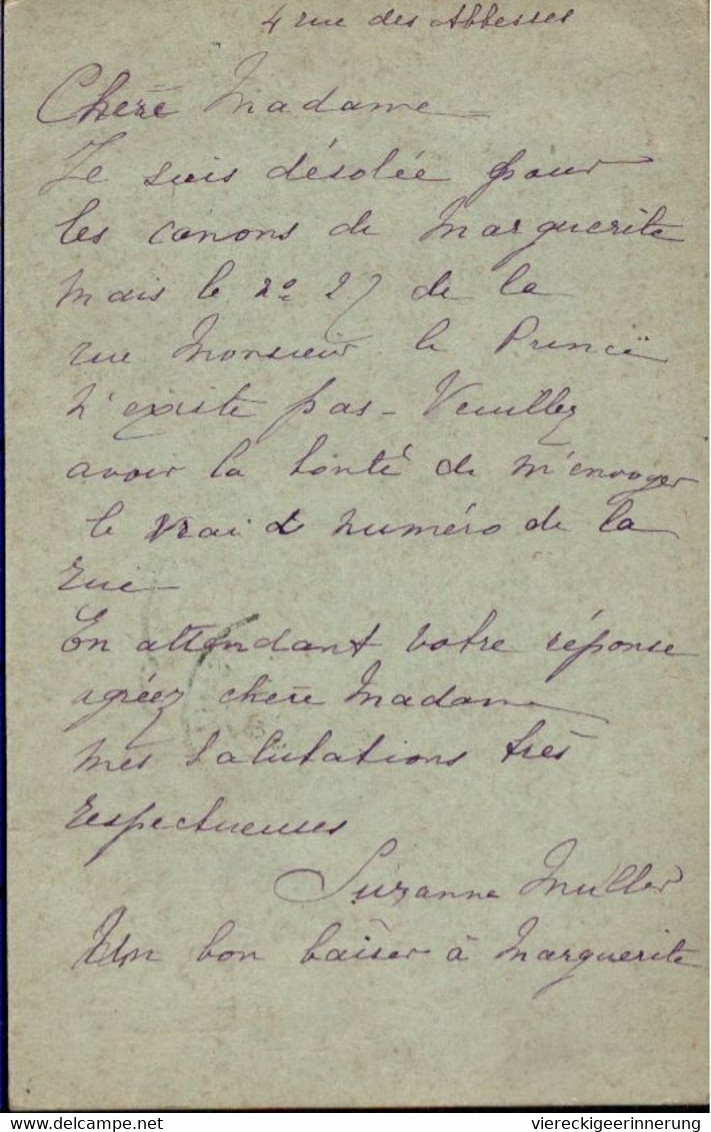 4 rue des Abbesses
Chere Madame
Je suis désolée pour
les canons de Marguerite
mais le no 27 de la
rue Monsieur le Prince
n'existe pas - Veuillez
avoir la bonté de m'envoyer
le vrai numéro de la
rue -
En attendant votre réponse
agréez chere Madame
mes salutations très
respectueuses
Suzanne Muller
Un bon baiser à Marguerite
delcampe.net
viereckigeerinnerung